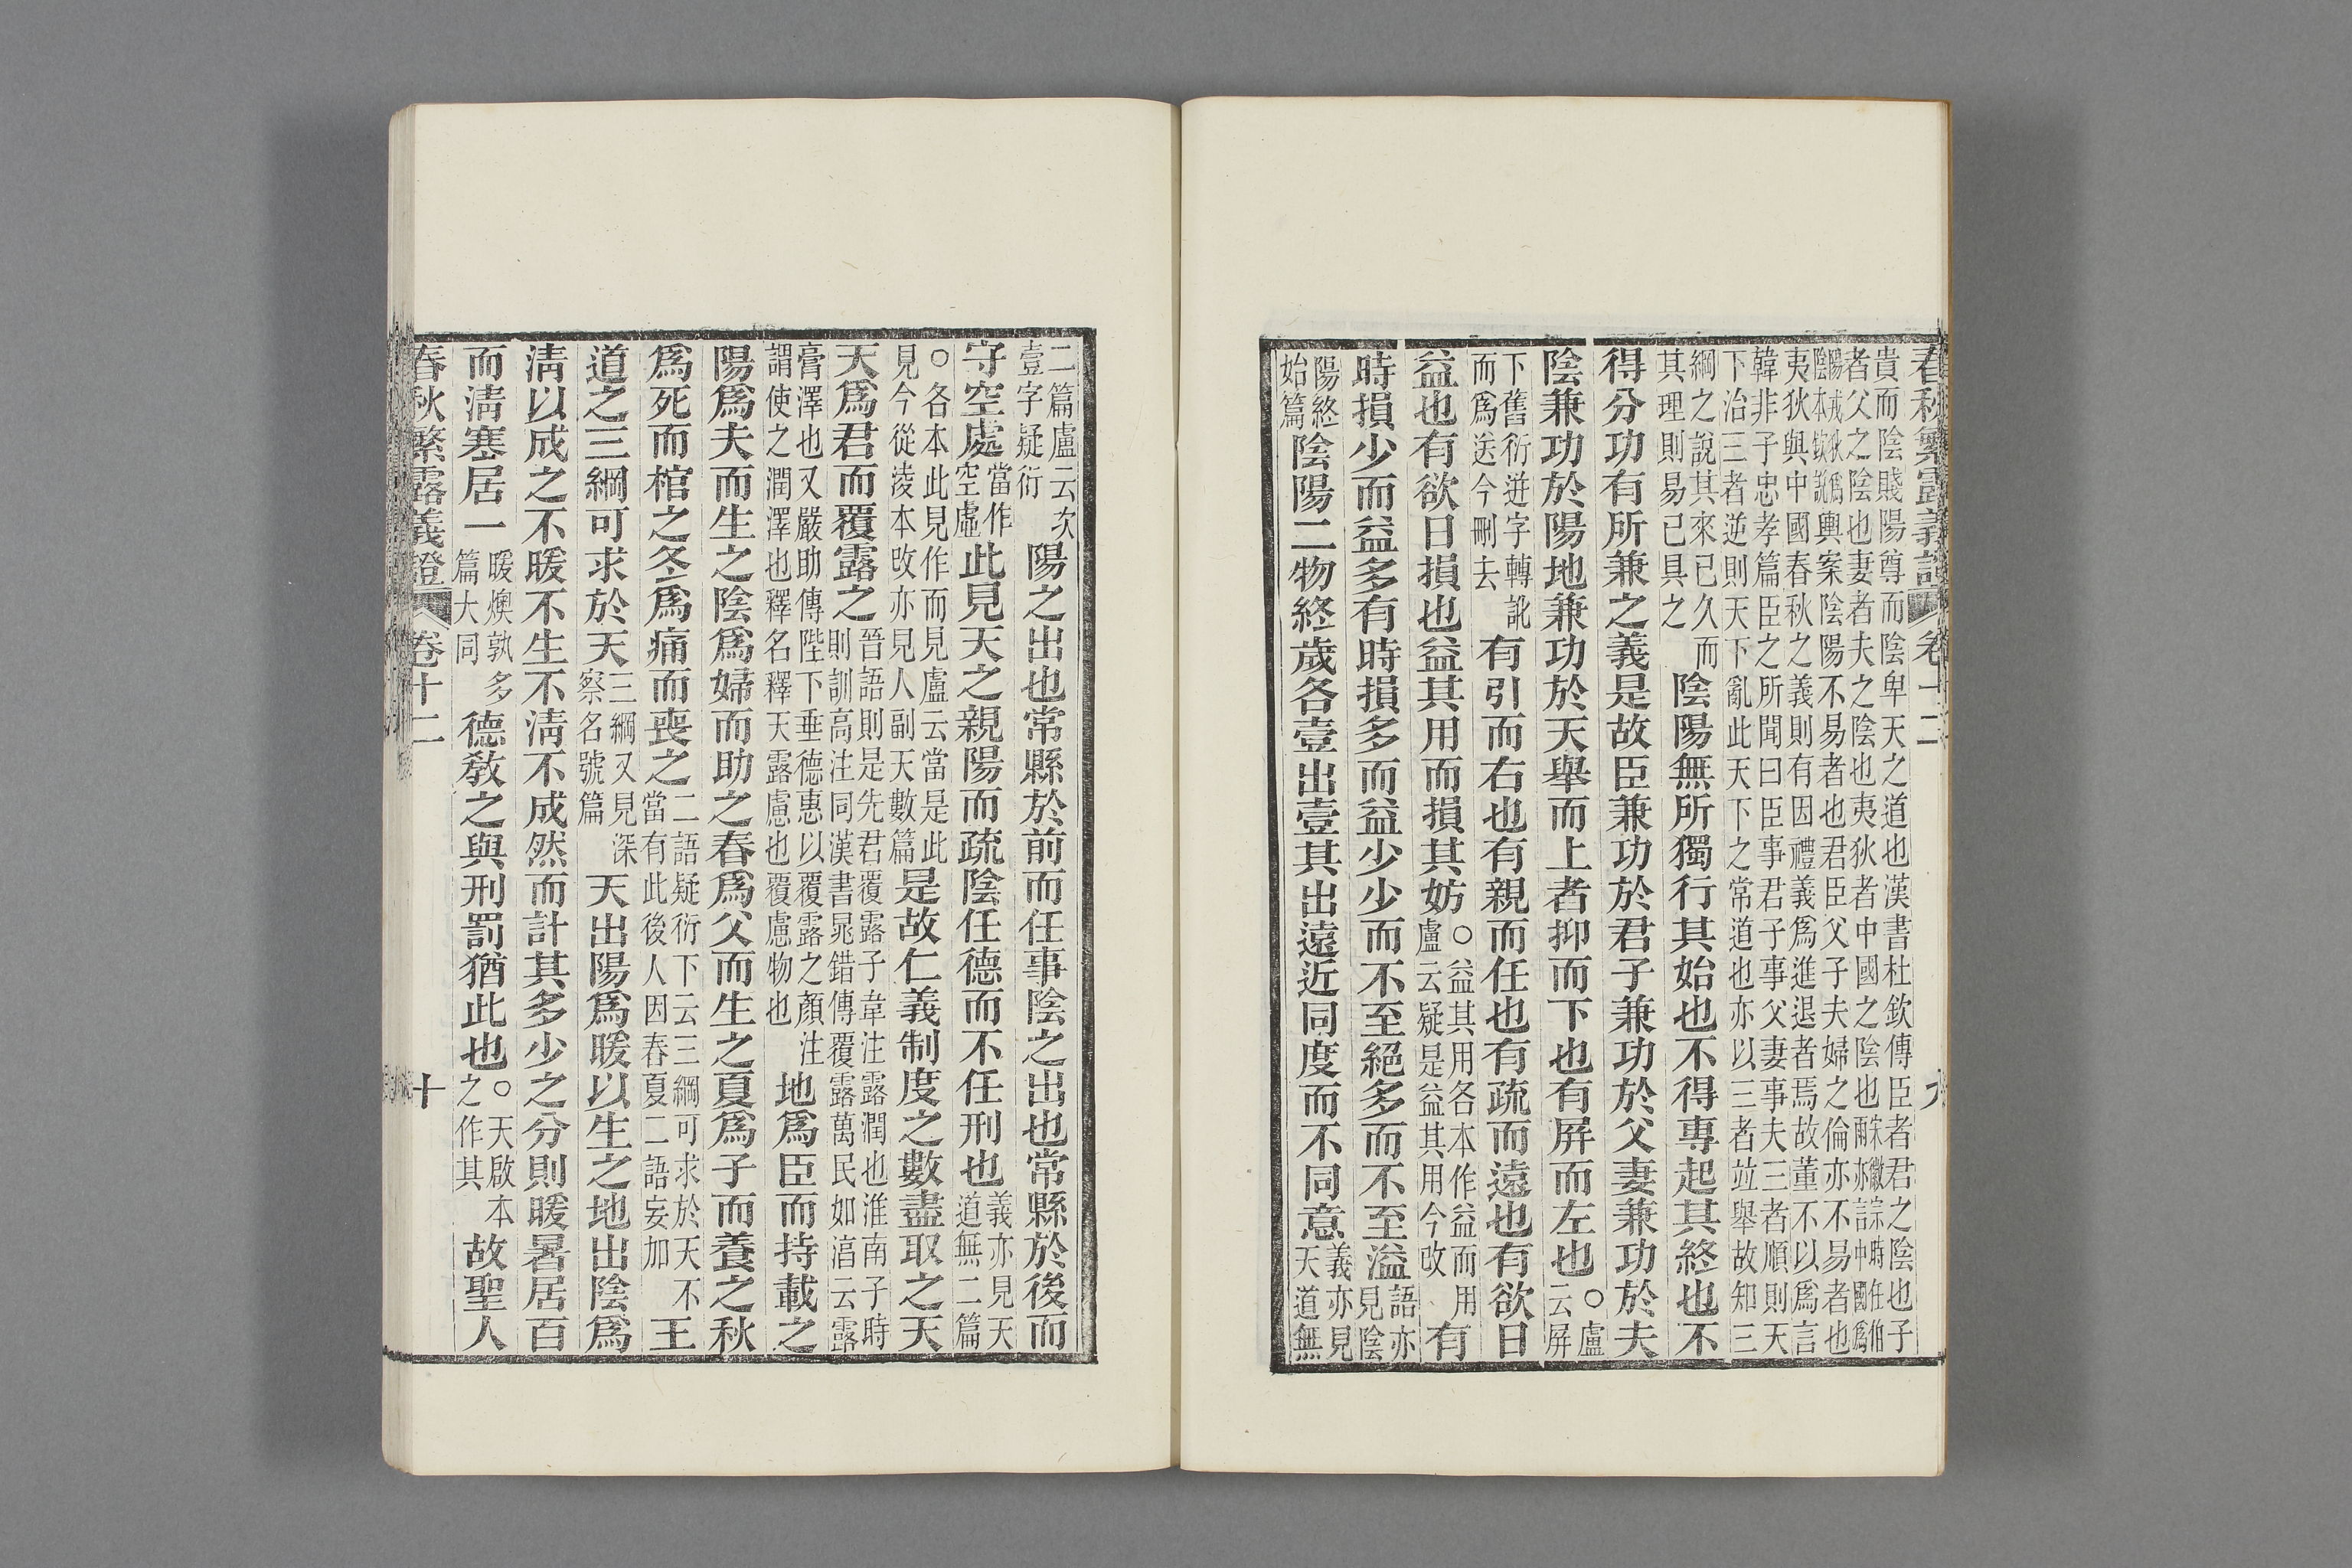 春秋繁露義證 卷十二 九
貴而陰賤陽尊而陰卑天之道也漢書杜欽傳臣者君之陰也子
者父之陰也妻者夫之陰也夷狄者中國之陰也
夷狄與中國春秋之義則有因禮義爲進退者焉故董不以爲言
輿案陰陽不易者也君臣父子夫婦之倫亦不易者也
韓非子忠孝篇臣之所聞曰臣事君子事父妻事夫三者順則天
下治三者逆則天下亂此天下之常道也亦以三者竝舉故知三
綱之說其來已久而
其理則易已具之
陰陽無所獨行其始也不得專起其終也不
得分功有所兼之義是故臣兼功於君子兼功於父妻兼功於夫
陰兼功於陽地兼功於天舉而上者抑而下也有屏而左也
○盧
云屏
下舊衍迸字轉訛
而爲送今刪去
有引而右也有親而任也有疏而遠也有欲日
益也有欲日損也益其用而損其妨
○益其用各本作益而用
盧云疑是益其用今改
有
時損少而益多有時損多而益少少而不至絕多而不至溢
語亦
見陰
陽終
始篇
陰陽二物終歲各壹出壹其出遠近同度而不同意
義亦見
天道無
二篇盧云次
壹字疑衍
陽之出也常縣於前而任事陰之出也常縣於後而
守空處
當作
空虛
此見天之親陽而疏陰任德而不任刑也
義亦見天
道無二篇
○各本此見作而見盧云當是此
見今從淩本改亦見人副天數篇
是故仁義制度之數盡取之天
天爲君而覆露之
晉語則是先君覆露子韋注露潤也淮南子時
則訓高注同漢書鼂錯傳覆露萬民如淳云露
膏澤也又嚴助傳陛下垂德惠以覆露之顏注
謂使之潤澤也釋名釋天露慮也覆慮物也
地爲臣而持載之
陽爲夫而生之陰爲婦而助之春爲父而生之夏爲子而養之秋
爲死而棺之冬爲痛而喪之
二語疑衍下云三綱可求於天不
當有此後人因春夏二語妄加
王
道之三綱可求於天
三綱又見深
察名號篇
天出陽爲暖以生之地出陰爲
淸以成之不暖不生不淸不成然而計其多少之分則暖暑居百
而淸寒居一
暖燠孰多
篇大同
德教之與刑罰猶此也
○天啟本
之作其
故聖人
春秋繁露義證 卷十二 十